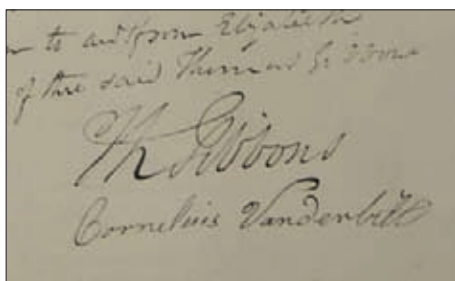 to and from Elizabeth
of the said Thomas Gibbons
Th Gibbons
Cornelius Vanderbilt